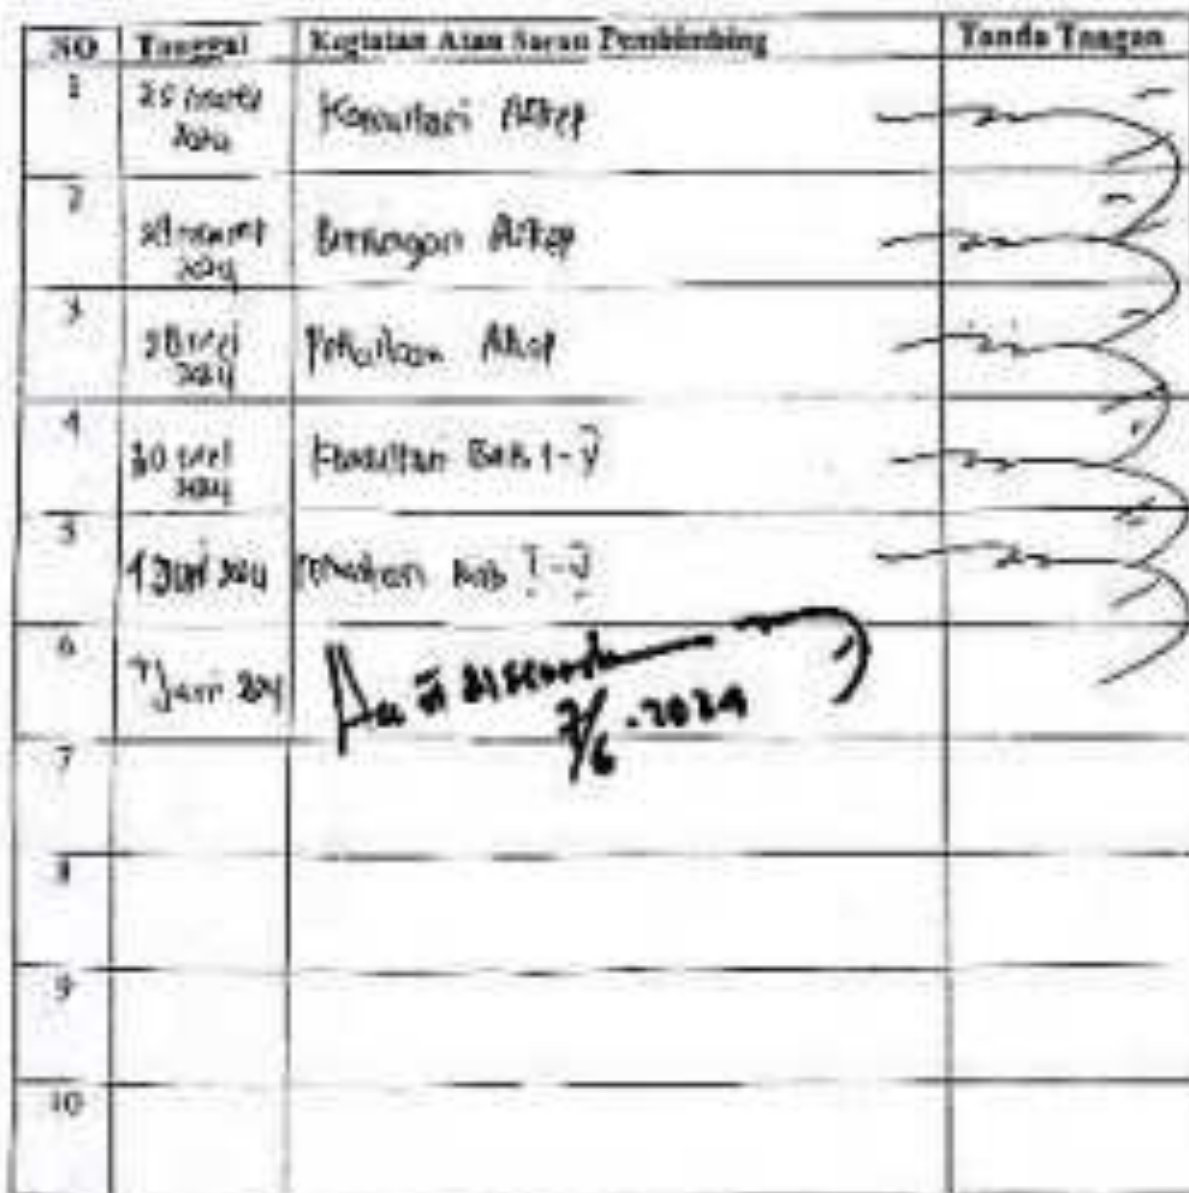 NO Tanggal Kegiatan Atau Saran Pembimbing Tanda Tangan
1 25 maret 2024 Konsultasi Askep
2 maret 2024 Bimbingan Askep
3 28 mei 2024 Askep
4 30 mei 2024 Konsultasi Bab 1-V
5 1 Juni 2024 Bab I-V
6 7 Juni 2024 Acc
7/6-2024
7
8
9
10